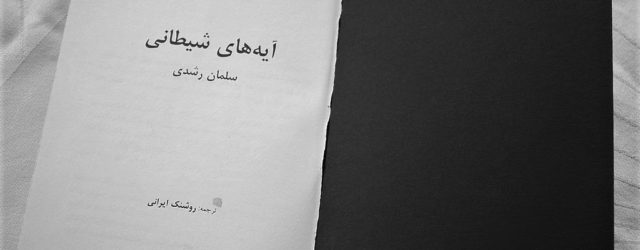 آیه‌های شیطانی
سلمان رشدی
ترجمه: روشنک ایرانی